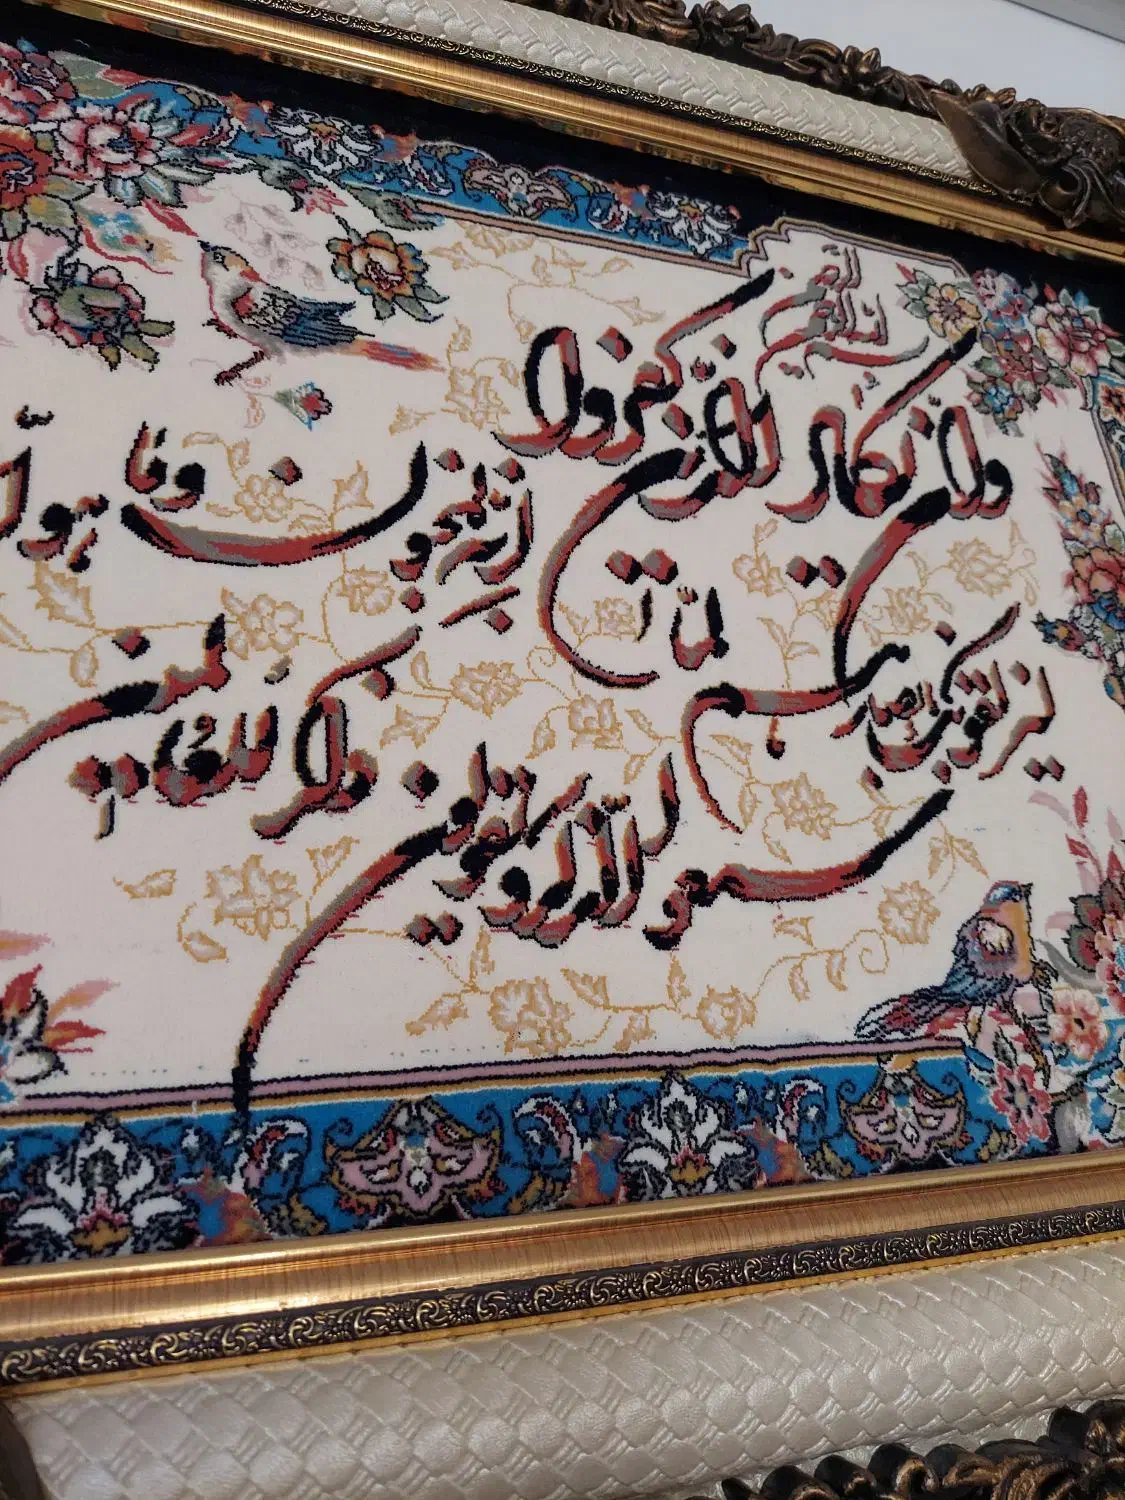 بسم الله الرحمن الرحیم
وان یکاد الذین کفروا
لیزلقونک بابصارهم لما
سمعوا الذکر ویقولون
انه لمجنون وما هو الا
ذکر للعلمین